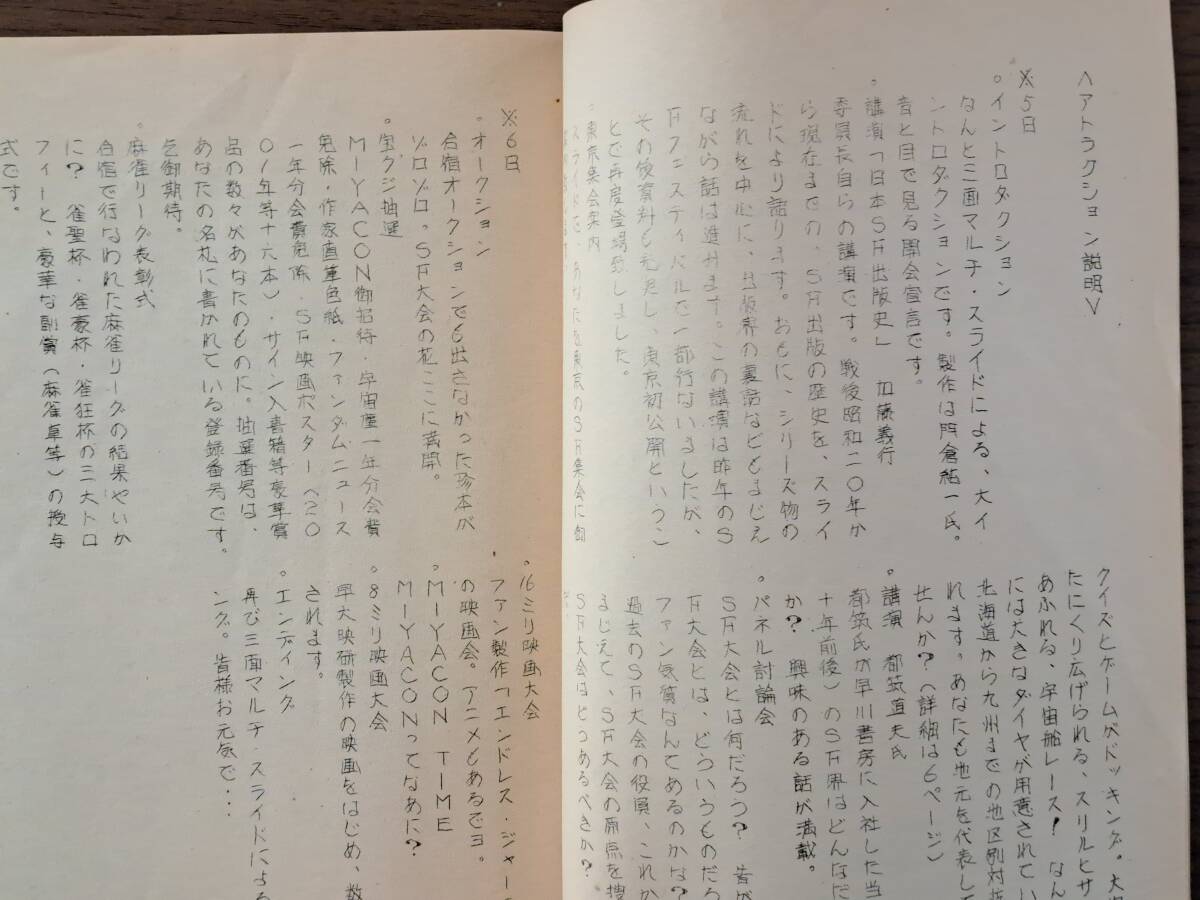 ＜アトラクション説明＞
※5日
。イントロダクション
なんと三面マルチ・スライドによる、大イ
ントロダクションです。製作は門倉純一氏。
音と目で見る開会宣言です。
。講演「日本SF出版史」 加藤義行
委員長自らの講演です。戦後昭和二〇年か
ら現在までの、SF出版の歴史を、スライ
ドにより話ります。おもに、シリーズ物の
流れを中心に、出版界の裏話などもまじえ
ながら話は進みます。この講演は昨年のS
Fフェスティバルで一部行ないましたが、
その後資料も充実し、東京初公開というこ
とで再度登場致しました。
。東京集会案内
スライドで、あなたを東京のSF集会に御
クイズとゲームがドッキング。大
たにくり広げられる、スリルとサ
あふれる、宇宙船レース！ なん
には大きなダイヤが用意されてい
北海道から九州までの地区別対抗
れます。あなたも地元を代表して
せんか？（詳細は6ページ）
。講演 都筑道夫氏
都筑氏が早川書房に入社した当
十年前後）のSF界はどんなだ
か？ 興味のある話が満載。
。パネル討論会
SF大会とは何だろう？ 昔が
F大会とは、どういうものだろ
ファン気質なんてあるのかな？
過去のSF大会の役員、これか
まじえて、SF大会の原点を捜
SF大会はどうあるべきか？
※6日
。オークション
合宿オークションでも出さなかった珍本が
ゾロゾロ。SF大会の花ここに満開。
。宝クジ抽選
MIYACON御招待・宇宙塵一年分会費
免除・作家直筆色紙・ファンダムニュース
一年分会費免除・SF映画ポスター（20
01年等十六本）・サイン入書籍等豪華賞
品の数々があなたのものに。抽選番号は、
あなたの名札に書かれている登録番号です。
乞御期待。
。麻雀リーグ表彰式
合宿で行なわれた麻雀リーグの結果やいか
に？ 雀聖杯・雀豪杯・雀狂杯の三大トロ
フィーと、豪華な副賞（麻雀卓等）の授与
式です。
。16ミリ映画大会
ファン製作「エンドレス・ジャー
の映画会。アニメもあるでヨ。
。MIYACON TIME
MIYACONってなあに？
。8ミリ映画大会
早大映研製作の映画をはじめ、数
されます。
。エンディング
再び三面マルチ・スライドによる
ング。皆様お元気で・・・